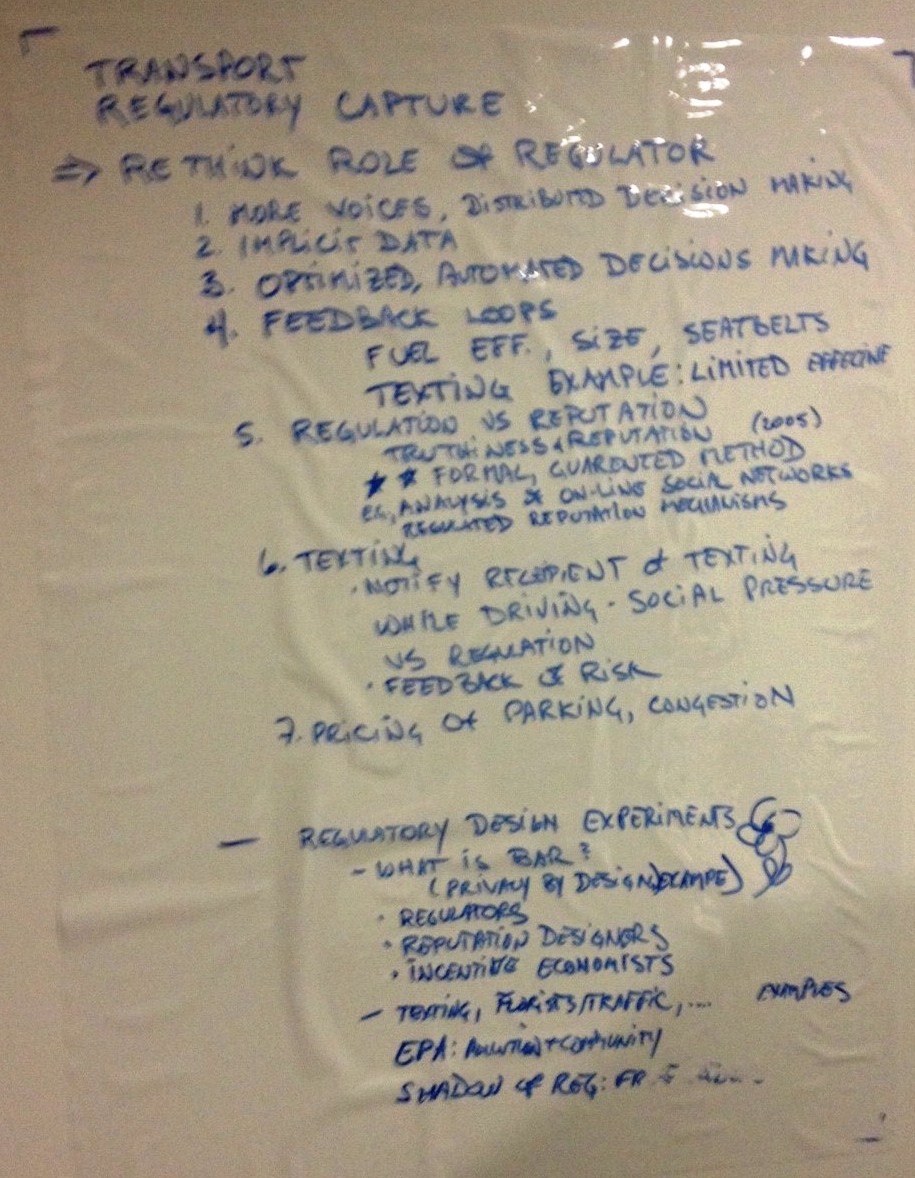 TRANSPORT
REGULATORY CAPTURE
⇒ RETHINK ROLE OF REGULATOR
1. MORE VOICES, DISTRIBUTED DECISION MAKING
2. IMPLICIT DATA
3. OPTIMIZED, AUTOMATED DECISIONS MAKING
4. FEEDBACK LOOPS
FUEL EFF., SIZE, SEATBELTS
TEXTING EXAMPLE: LIMITED EFFECTIVE
5. REGULATION VS REPUTATION
TRUTHINESS & REPUTATION (2005)
** FORMAL, GUARENTED METHOD
EG, ANALYSIS OF ON-LINE SOCIAL NETWORKS
REGULATED REPUTATION MECHANISMS
6. TEXTING
· NOTIFY RECIPIENT OF TEXTING
WHILE DRIVING - SOCIAL PRESSURE
VS REGULATION
· FEEDBACK OF RISK
7. PRICING OF PARKING, CONGESTION
— REGULATORY DESIGN EXPERIMENTS
- WHAT IS BAR?
(PRIVACY BY DESIGN)
· REGULATORS
· REPUTATION DESIGNERS
· INCENTIVE ECONOMISTS
- TEXTING, FLORISTS/TRAFFIC, .... EXAMPLES
EPA: POLLUTION + COMMUNITY
SHADOW OF REG: